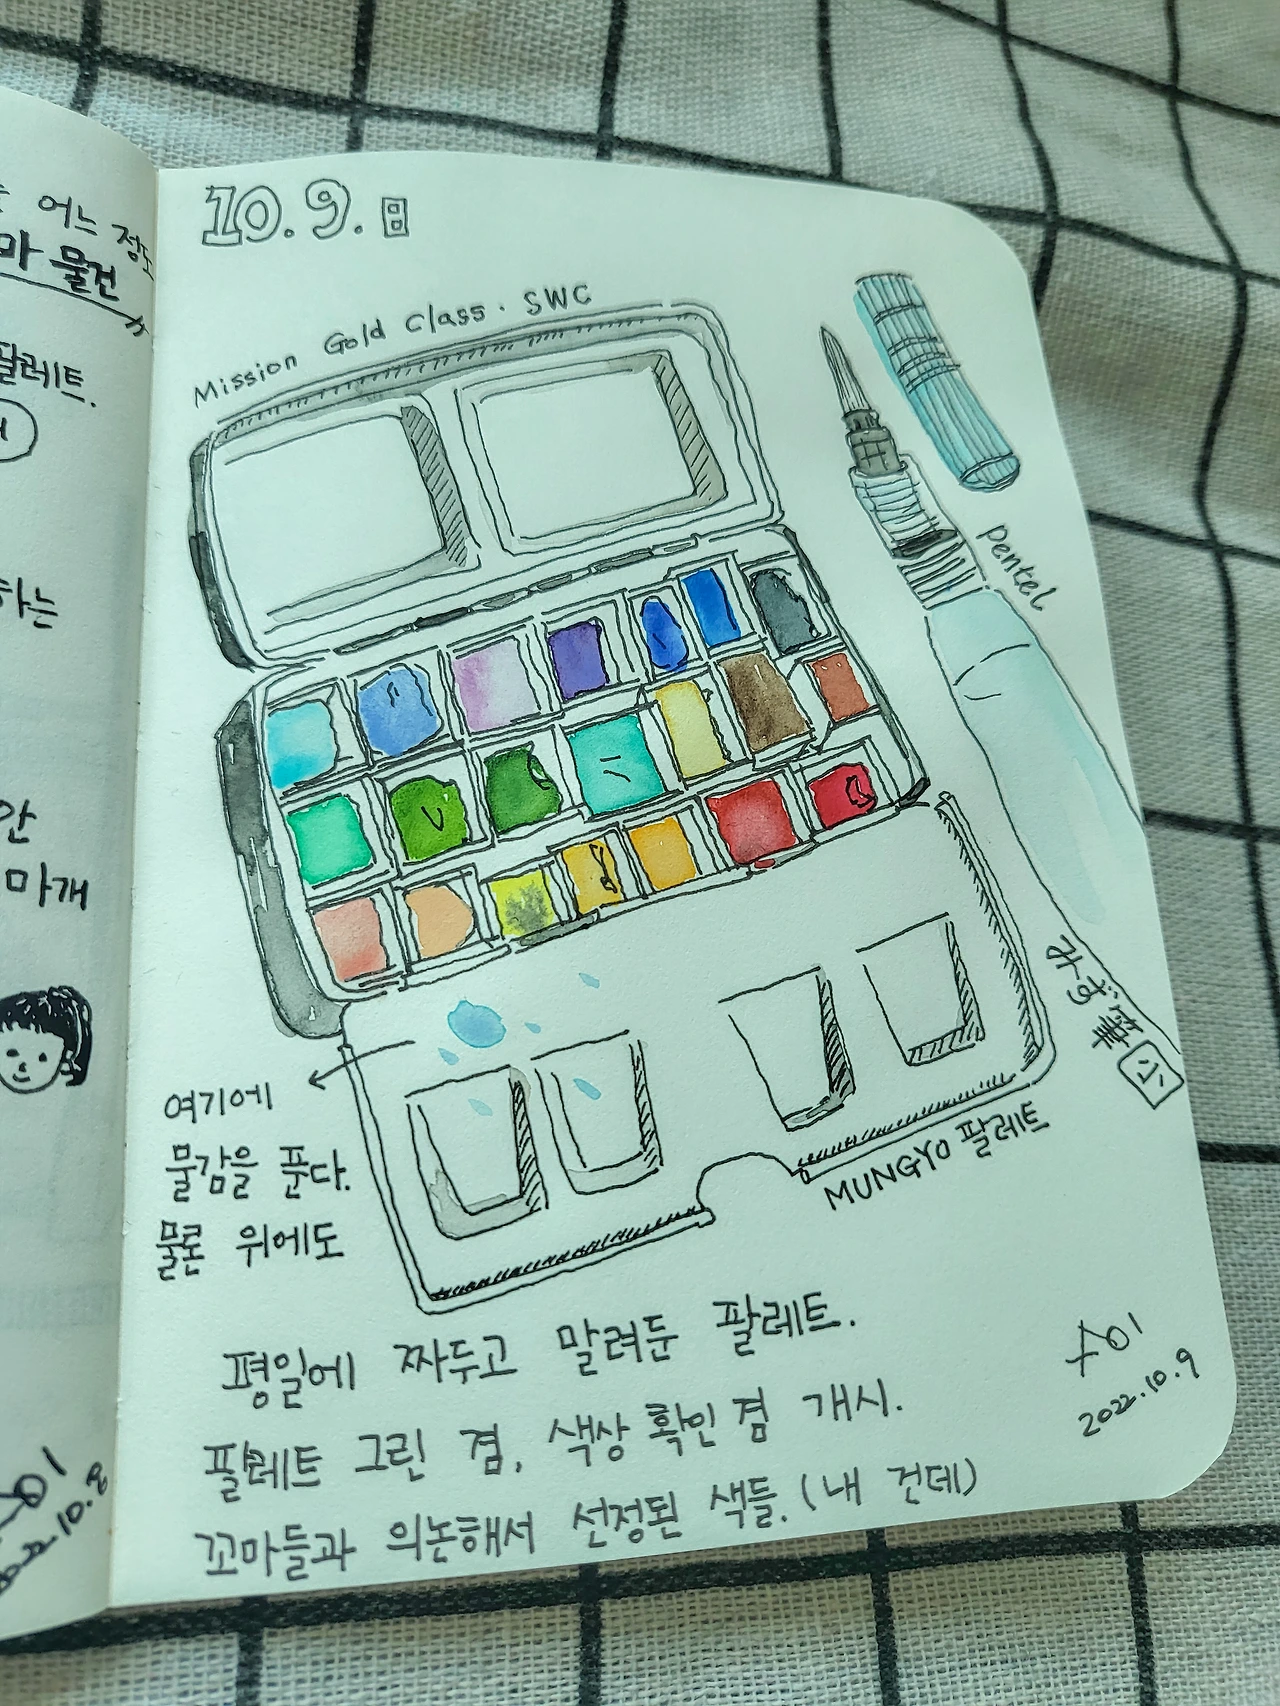 어느 정도
마 물건
팔레트.
하는
안
마개
2022.10.8
10. 9. 日
Mission Gold Class · SWC
Pentel
みず筆
小
여기에
물감을 푼다.
물론 위에도
MUNGYO 팔레트
평일에 짜두고 말려둔 팔레트.
팔레트 그린 겸, 색상 확인 겸 개시.
꼬마들과 의논해서 선정된 색들. (내 건데)
2022.10.9